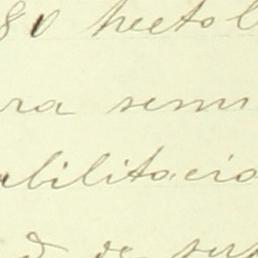 80 hectol
ra semi
abilitacio
d de sup